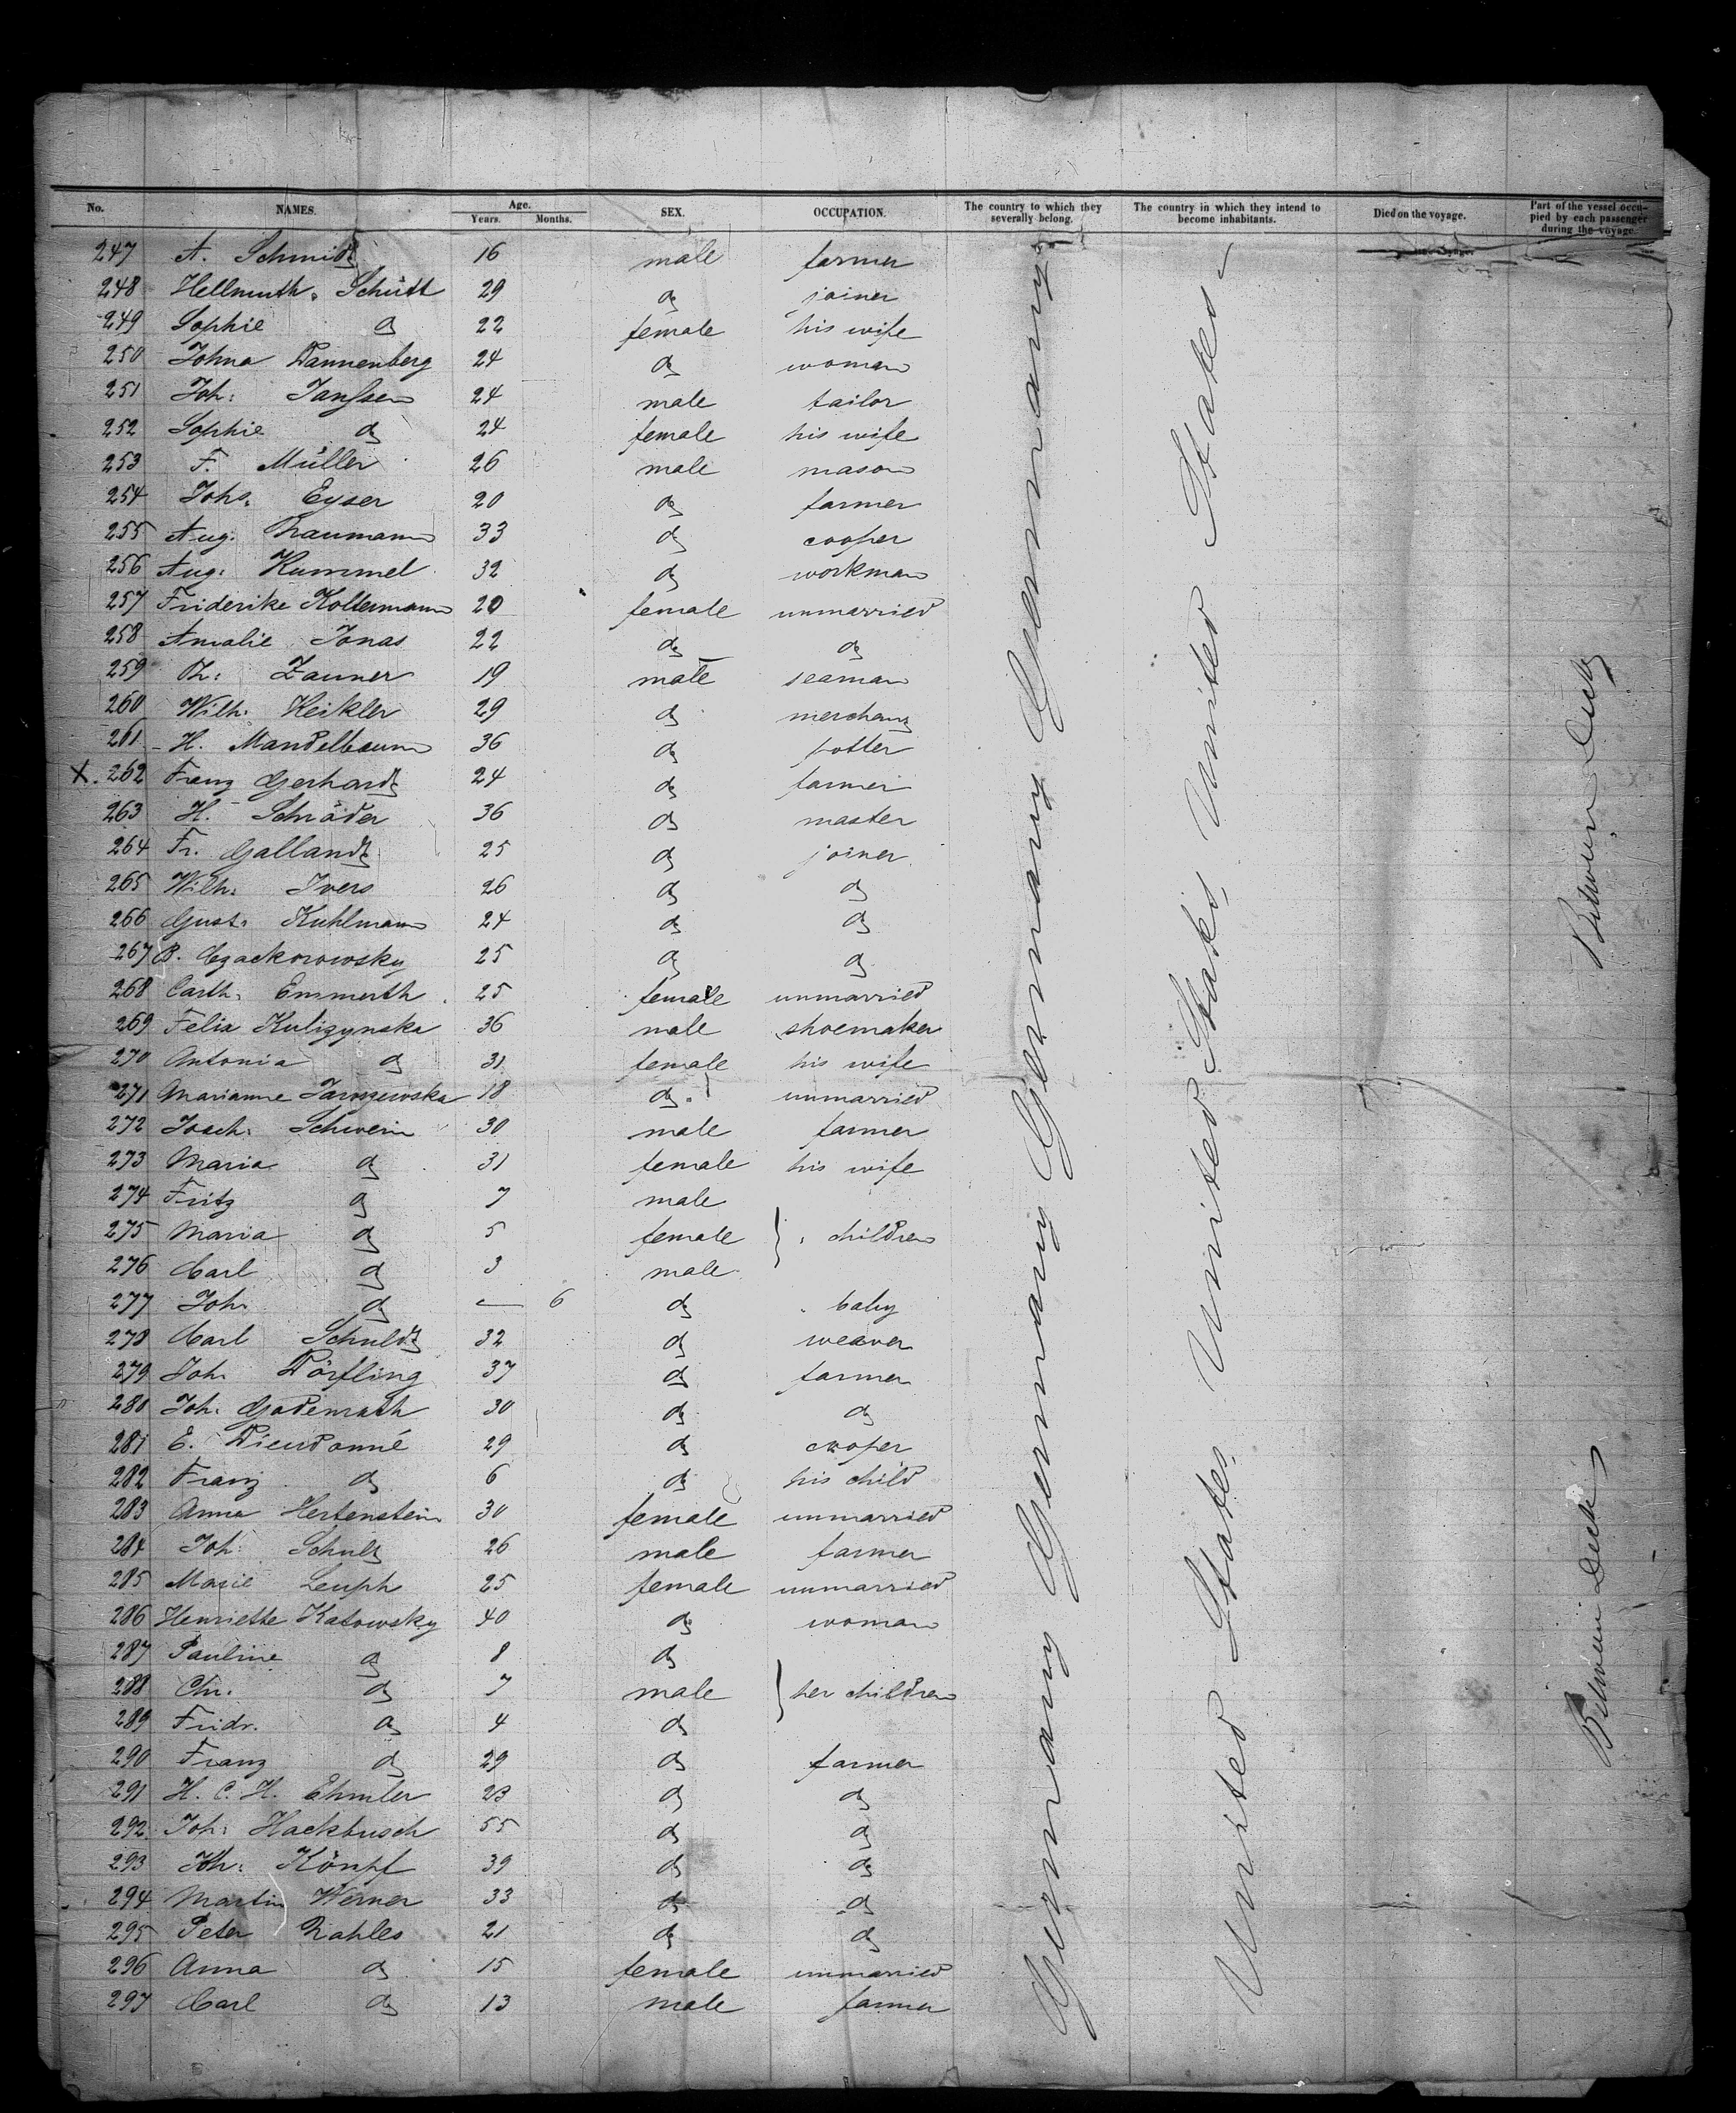 No. NAMES. Age. Years. Months. SEX. OCCUPATION. The country to which they severally belong. The country in which they intend to become inhabitants. Died on the voyage. Part of the vessel occupied by each passenger during the voyage.
247 A. Schmidt 16 male farmer
248 Hellmuth Schütt 29 do joiner
249 Sophie do 22 female his wife
250 Johna Dannenberg 24 do woman
251 Joh: Janssen 24 male tailor
252 Sophie do 24 female his wife
253 F. Müller 26 male mason
254 Johs. Eyser 20 do farmer
255 Aug. Naumann 33 do cooper
256 Aug. Kummel 32 do workman
257 Friderike Koltermann 20 female unmarried
258 Amalie Jonas 22 do do
259 Th: Zauner 19 male seaman
260 Wilh. Heikler 29 do merchant
261 H. Mandelbaum 36 do potter
X. 262 Franz Gerhardt 24 do farmer
263 H. Schröder 36 do master
264 Fr. Gallandt 25 do joiner
265 Wilh. Ivers 26 do do
266 Gust. Kuhlmann 24 do do
267 B. Czackorowsky 25 do do
268 Cath. Emmerth 25 female unmarried
269 Felix Kulizynska 36 male shoemaker
270 Antonia do 31 female his wife
271 Marianne Jaroszewska 18 do unmarried
272 Joach. Schwerin 30 male farmer
273 Maria do 31 female his wife
274 Fritz do 7 male
275 Maria do 5 female } children
276 Carl do 3 male
277 Joh. do — 6 do baby
278 Carl Schuldt 32 do weaver
279 Joh. Dörfling 37 do farmer
280 Joh. Godemath 30 do do
281 E. Dieudonné 29 do cooper
282 Franz do 6 do his child
283 Anna Hertenstein 30 female unmarried
284 Joh. Schulz 26 male farmer
285 Marie Leuph 25 female unmarried
286 Henriette Katowsky 40 do woman
287 Pauline do 8 do
288 Chr. do 7 male } her children
289 Fridr. do 4 do
290 Franz do 29 do farmer
291 H. C. H. Ehmler 23 do do
292 Joh: Hackbusch 55 do do
293 Joh: Könpf 39 do do
294 Martin Werner 33 do do
295 Peter Rahles 21 do do
296 Anna do 15 female unmarried
297 Carl do 13 male farmer
Germany Germany Germany Germany
United States United States United States
Between Deck Between Deck